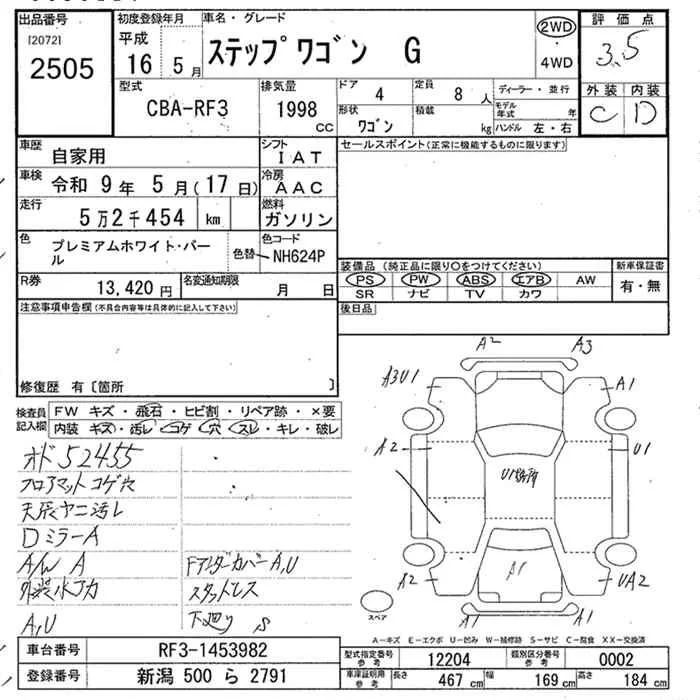 出品番号
[2072]
2505
初度登録年月
平成
16 5月
車名・グレード
ステップワゴン G
2WD
・
4WD
評価点
3.5
外装 内装
C D
型式
CBA-RF3
排気量
1998
CC
ドア 4
定員 8 人
ディーラー・並行
形状 ワゴン
積載 kg
モデル年式 年
ハンドル 左・右
車歴 自家用
シフト IAT
車検 令和 9 年 5 月(17 日)
冷房 AAC
走行 5万2千454 km
燃料 ガソリン
色 プレミアムホワイト・パール
色替
色コード NH624P
R券 13,420 円
名変通知期限 月 日
セールスポイント(正常に機能するものに限ります)
装備品(純正品に限り〇をつけてください)
PS PW ABS エアB AW
SR ナビ TV カワ
新車保証書
有・無
後日品
注意事項申告欄(不具合内容等は具体的に記入して下さい)
修復歴 有〔箇所 〕
検査員記入欄
FW キズ・飛石・ヒビ割・リペア跡・×要
内装 キズ・汚レ・コゲ・穴・スレ・キレ・破レ
オド52455
フロアマットコゲ穴
天張ヤニ汚レ
DミラーA
A/W A
外装水アカ
A,U
FアンダーカバーA,U
スタットレス
下廻り S
A2
A3
A3U1
A1
A2
U1
A1
A2
UA2
A1
A1
スペア
A－キズ E－エクボ U－凹み W－補修跡 S－サビ C－腐食 XX－交換済
車台番号 RF3-1453982
登録番号 新潟 500 ら 2791
型式指定番号 参考 12204
類別区分番号 参考 0002
車庫証明用 参考
長さ 467 cm
幅 169 cm
高さ 184 cm